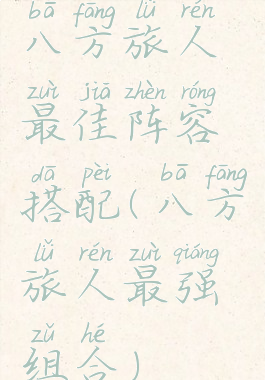 bā fāng lǚ rén
八方旅人
zuì jiā zhèn róng
最佳阵容
dā pèi bā fāng
搭配(八方
lǚ rén zuì qiáng
旅人最强
zǔ hé
组合)